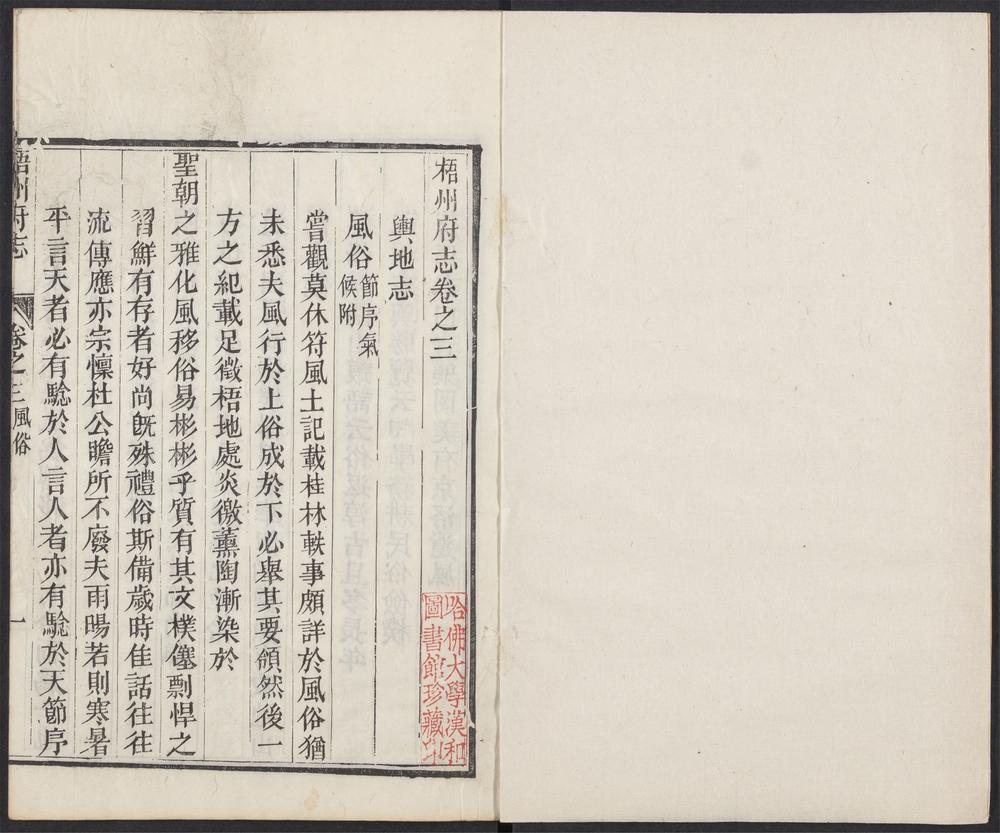 梧州府志卷之三
輿地志
風俗節序氣候附
嘗觀莫休符風土記載桂林軼事頗詳於風俗猶
未悉夫風行於上俗成於下必舉其要領然後一
方之紀載足徵梧地處炎徼薰陶漸染於
聖朝之雅化風移俗易彬彬乎質有其文樸僿剽悍之
習鮮有存者好尚旣殊禮俗斯備歲時佳話往往
流傳應亦宗懍杜公瞻所不廢夫雨暘若則寒暑
平言天者必有驗於人言人者亦有驗於天節序
梧州府志
卷之三風俗
一
哈佛大學漢和
圖書館珍藏印